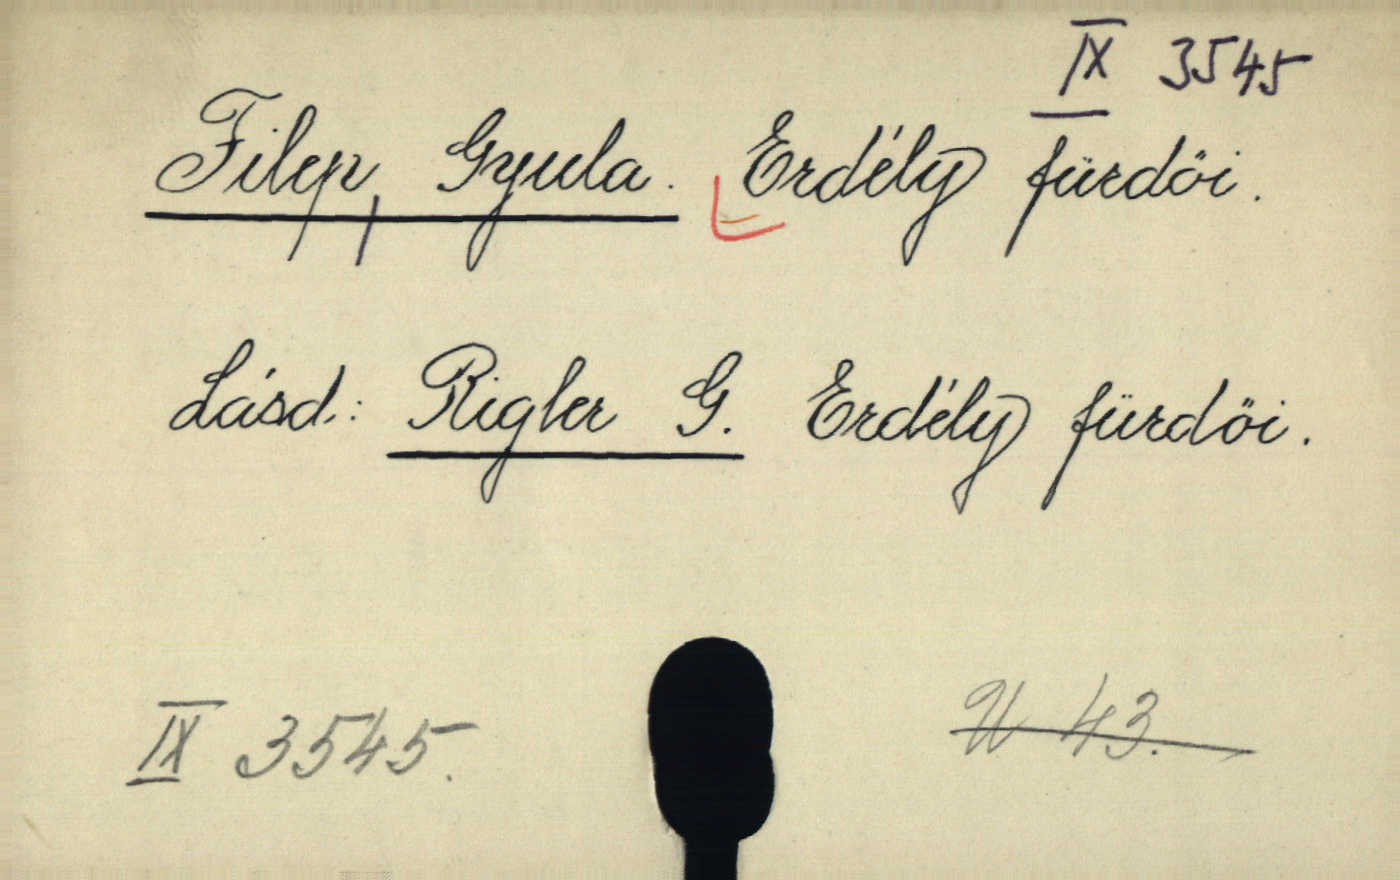 IX 3545
Filep, Gyula. Erdély fürdői.
Lásd: Rigler G. Erdély fürdői.
IX 3545.
U 43.